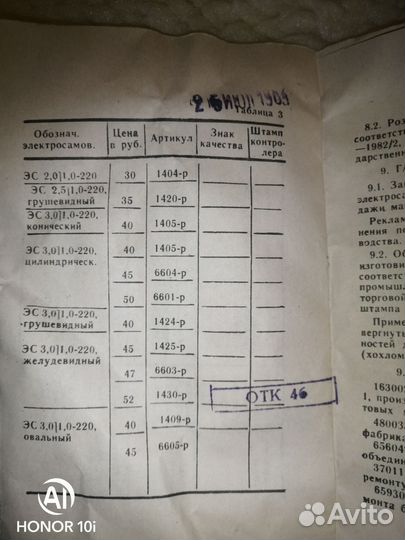 Таблица 3
Обознач. электросамов. Цена в руб. Артикул Знак качества Штамп контро-лера
ЭС 2,0]1,0-220 30 1404-р
ЭС 2,5]1,0-220,
грушевидный 35 1420-р
ЭС 3,0]1,0-220,
конический 40 1405-р
ЭС 3,0]1,0-220, 40 1405-р
цилиндрическ.
45 6604-р
50 6601-р
ЭС 3,0]1,0-220,
-грушевидный 40 1424-р
ЭС 3,0]1,0-220, 45 1425-р
желудевидный
47 6603-р
52 1430-р
ОТК 46
ЭС 3,0]1,0-220, 40 1409-р
овальный
45 6605-р
8.2. Роз
соответств
—1982/2,
дарственн
9. ГА
9.1. За
электроса
дажи, ма
Реклам
нения по
водства.
9.2. Об
изготови
соответс
промышл
торговой
штампа
Приме
вергнуты
ностей д
(хохлом
9.
16300
1, произ
товых
48003
фабрика
65604
объедин
37011
ремонту
65930
монта б
AI
HONOR 10i
Avito